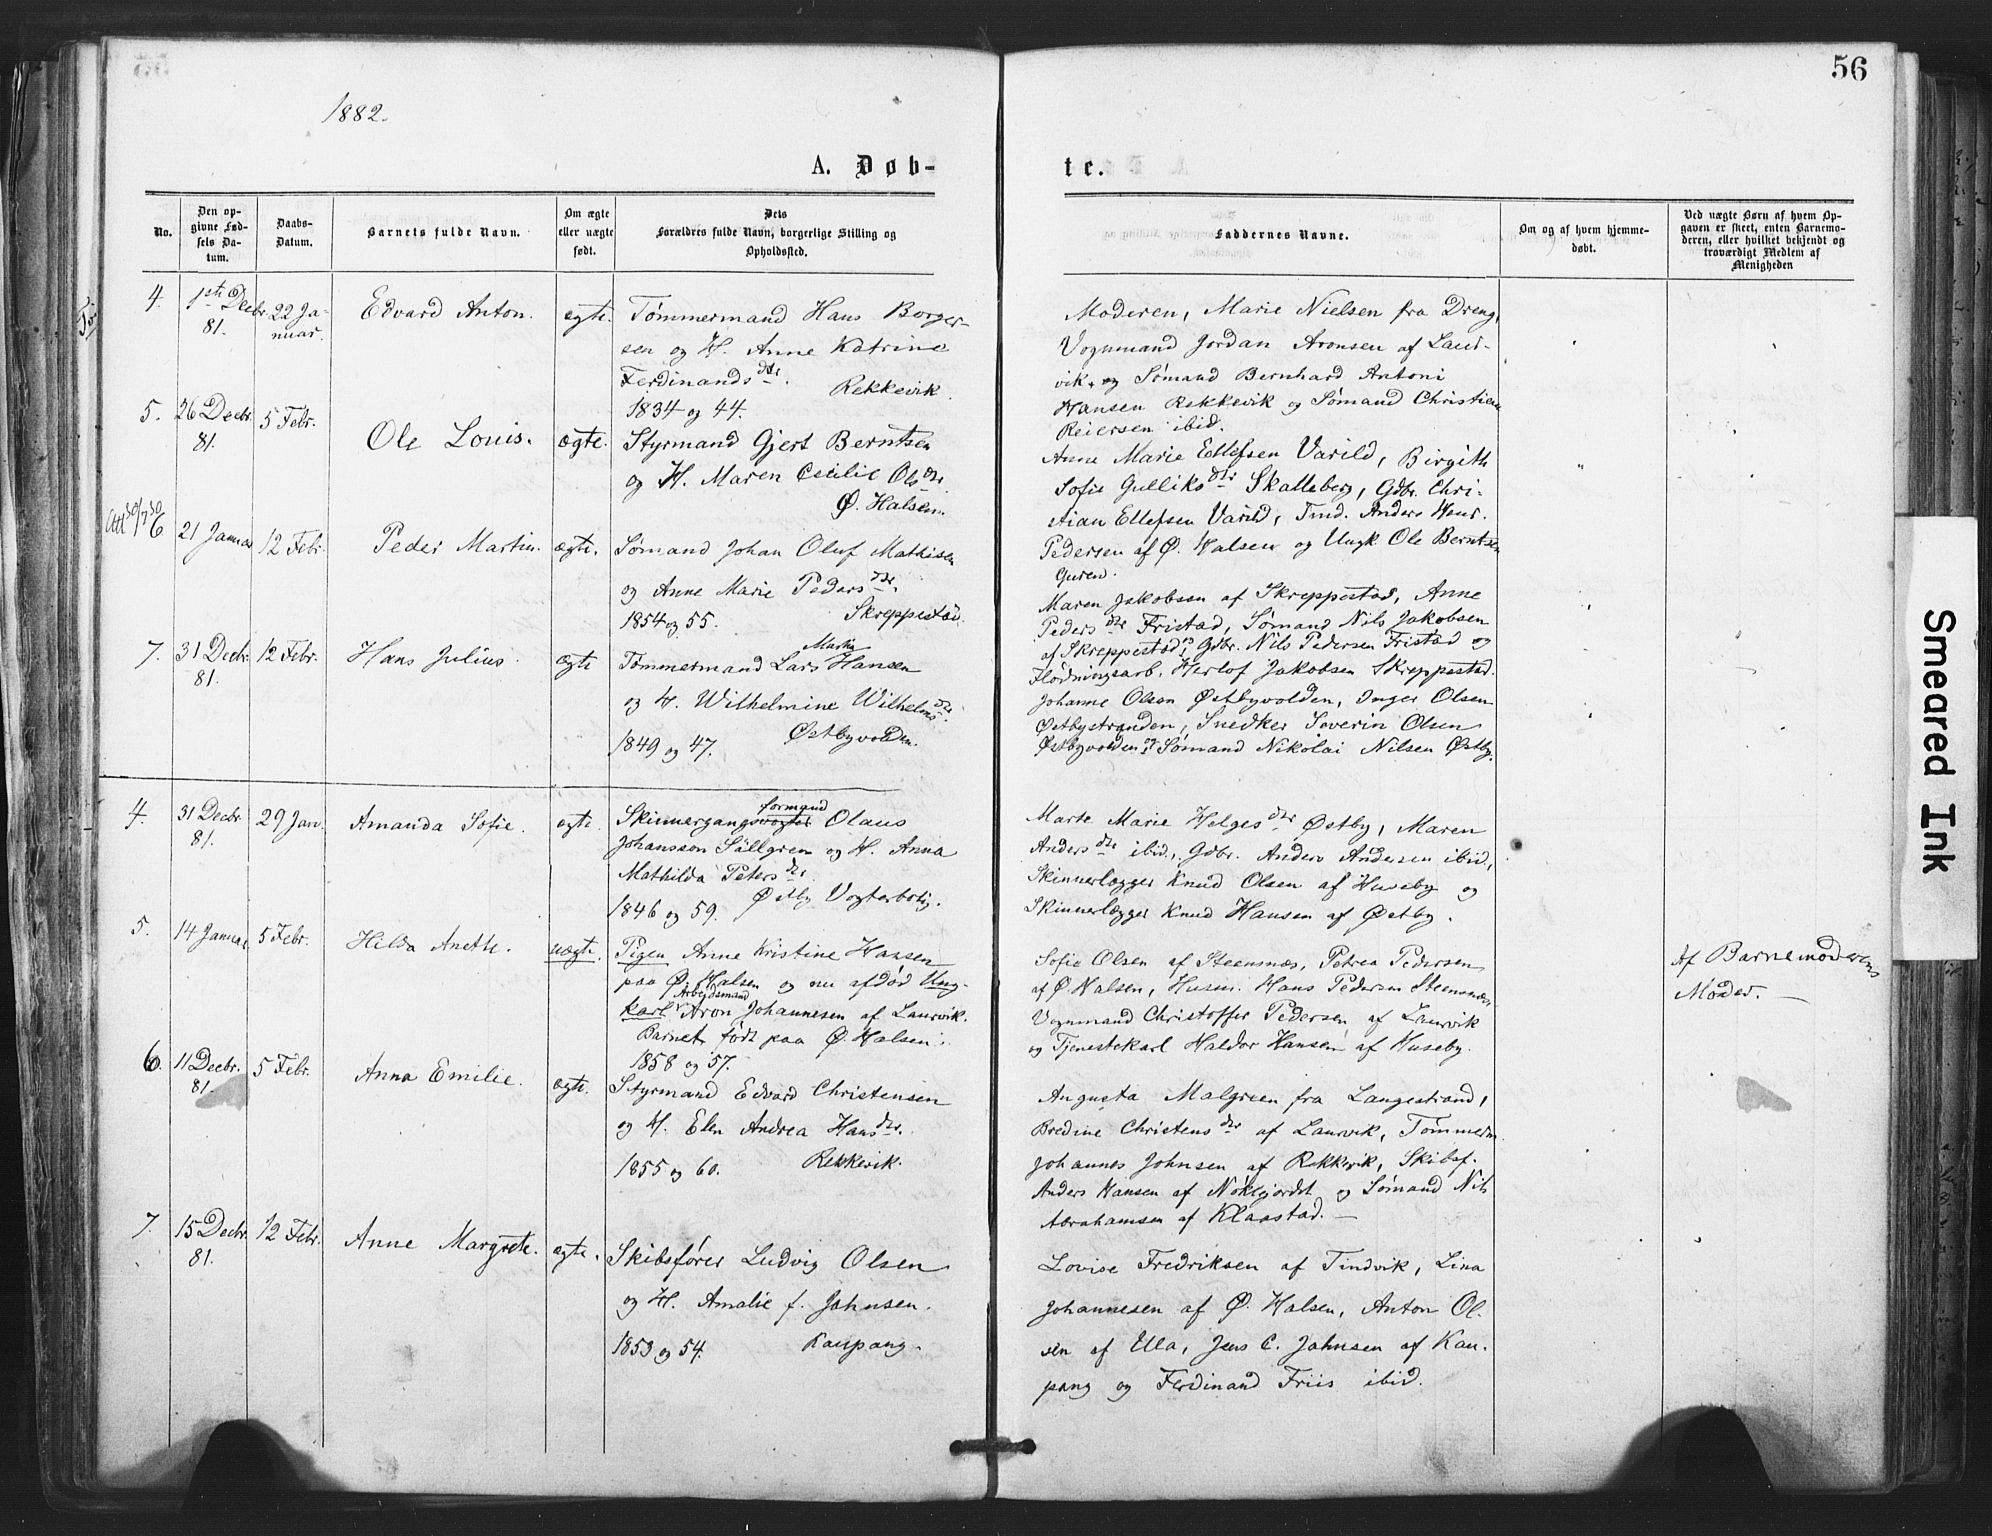 56
1882.
A. Døb-
te.
No.
Den op-
givne Fød-
sels Da-
tum.
Daabs-
Datum.
Barnets fulde Navn.
Om ægte
eller uægte
født.
Dets
Forældres fulde Navn, borgerlige Stilling og
Opholdssted.
Faddernes Navne.
Om og af hvem hjemme-
døbt.
Ved uægte Børn af hvem Op-
gaven er skeet, enten Barnemo-
deren, eller hvilket bekjendt og
troværdigt Medlem af
Menigheden
4.
1ste Decbr.
81.
22 Ja-
nuar.
Edvard Anton.
egte.
Tømmermand Hans Borger-
sen og H. Anne Katrine
Ferdinandsdtr.
Rekkevik.
1834 og 44.
Moderen, Marie Nielsen fra Dreng,
Vognmand Jordan Aronsen af Laur-
vik, og Sømand Bernhard Antoni
Hansen Rekkevik og Sømand Christian
Reiersen ibid.
5.
26 Decbr.
81.
5 Febr.
Ole Louis.
ægte.
Styrmand Gjert Berntsen
og H. Maren Cecilie Olsdtr.
Ø. Halsen.
Anne Marie Ellefsen Varild, Birgith
Sofie Gulliksdtr Skalleberg, Gdbr. Chri-
stian Ellefsen Varild, Tmd. Anders Henr.
Pedersen af Ø. Halsen og Ungk. Ole Berntsen
Guren.
Att 30/7 30
6
21 Januar
12 Febr.
Peder Martin.
ægte.
Sømand Johan Oluf Mathisen
og Anne Marie Pedersdtr.
1854 og 55.
Skreppestad.
Maren Jakobsen af Skreppestad, Anne
Pedersdtr Fristad, Sømand Nils Jakobsen
af Skreppestad, Gdbr. Nils Pedersen Fristad og
Flødningsarb. Herlof Jakobsen Skreppestad.
7.
31 Decbr.
81.
12 Febr.
Hans Julius.
ægte
Martin
Tømmermand Lars Hansen
og H. Wilhelmine Wilhelmsdtr.
1849 og 47.
Østbyvolden.
Johanne Olsen Østbyvolden, Inger Olsen
Østbystranden, Snedker Severin Olsen
Østbyvolden, og Sømand Nikolai Nilsen Østby.
4.
31 Decbr.
81.
29 Jan.
Amanda Sofie.
egte.
formand
Skinnergangsvogter Olaus
Johansson Sällgren og H. Anna
Mathilda Petersdtr.
1846 og 59.
Østby Vogterbolig.
Marte Marie Helgesdtr Østby, Maren
Andersdtr ibid., Gdbr. Anders Andersen ibid,
Skinnerlægger Knud Olsen af Huseby og
Skinnerlægger Knud Hansen af Østby.
5.
14 Januar
5 Febr.
Hilda Anette.
uægte.
Pigen Anne Kristine Hansen
paa Ø. Halsen og nu afdød Ung-
Arbejdsmand
karl Aron Johannesen af Laurvik.
Barnet født paa Ø. Halsen.
1858 og 57.
Sofie Olsen af Steensnæs, Petrea Pedersen
af Ø. Halsen, Husm. Hans Pedersen Steensnæs,
Vognmand Christoffer Pedersen af Laurvik
og Tjenestekarl Haldor Hansen af Huseby.
Af Barnemoderens
Moder.
6.
11 Decbr.
81.
5 Febr.
Anna Emilie.
egte.
Styrmand Edvard Christensen
og H. Elen Andrea Hansdtr.
1855 og 60.
Rekkevik.
Augusta Malgreen fra Langestrand,
Bredine Christensdtr af Laurvik, Tømmerm.
Johannes Johnsen af Rekkevik, Skibsf.
Anders Hansen af Nøklgjordet og Sømand Nils
Abrahamsen af Klaastad.
7.
15 Decbr.
81.
12 Febr.
Anne Margrete.
egte.
Skibsfører Ludvig Olsen
og H. Amalie f. Johnsen.
1853 og 54.
Kaupang.
Lovise Fredriksen af Tindvik, Lina
Johannesen af Ø. Halsen, Anton Ol-
sen af Ula, Jens C. Johnsen af Kau-
pang og Ferdinand Friis ibid.
Smeared Ink